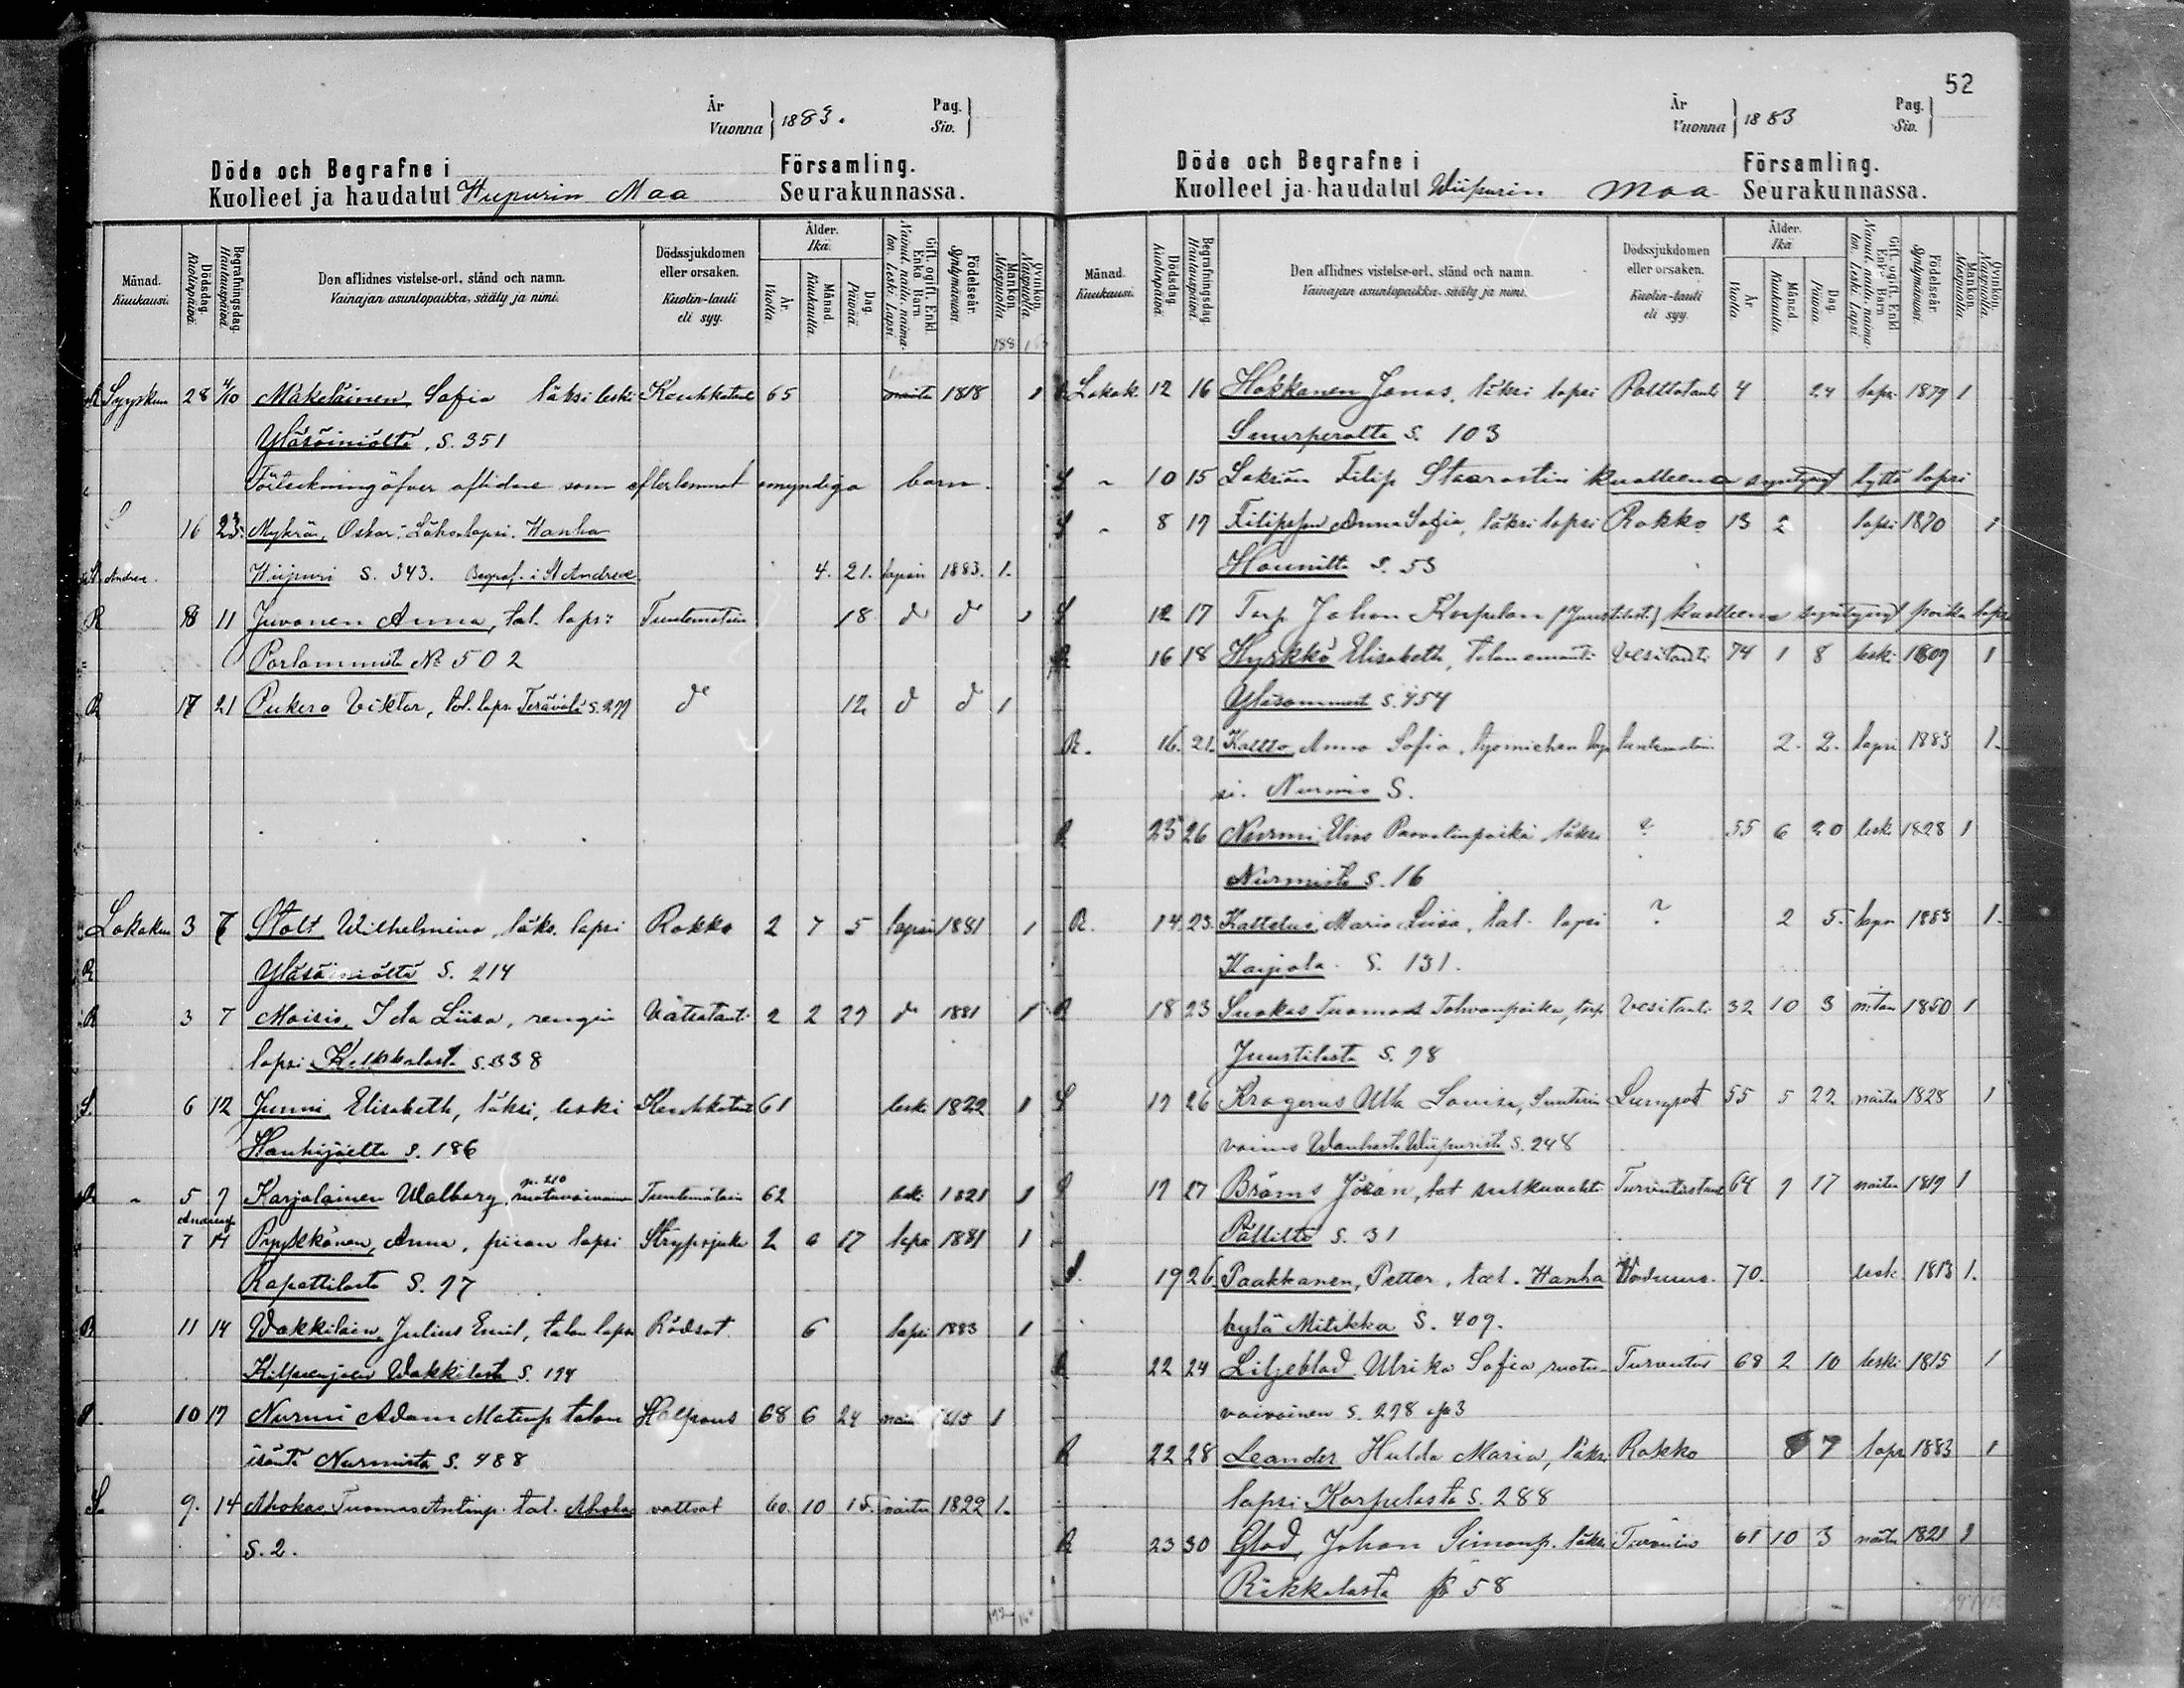 År
Vuonna } 1883.
Pag.
Siv. }
Döde och Begrafne i Församling.
Kuolleet ja haudatut Wiipurin Maa Seurakunnassa.
Månad. Kuukausi.
Dödsdag. Kuolinpäivä.
Begrafningsdag. Hautauspäivä.
Den aflidnes vistelse-ort, stånd och namn.
Vainajan asuntopaikka, sääty ja nimi.
Dödssjukdomen eller orsaken.
Kuolin-tauti eli syy.
Ålder. Ikä.
År. Vuotta.
Månad. Kuukautta.
Dag. Päivää.
Gift, ogift, Enkl. Enka, Barn
Nainut, naitu, naimaton, Leski, Lapsi.
Födelseår. Syntymävuosi.
Mankön. Miespuolia.
Qvinkön. Naispuolia.
R Syyskuu 28 4/10 Mäkeläinen, Sofia läksi leski Keuhkotauti 65 1818 1
Yläsäiniöltä, S. 351
Förteckning öfver aflidne som efterlemnat omyndiga barn.
S 16 23 Mykrä, Oskar, Läks. lapsi. Wanha
St Andree. Wiipuri S. 343. Begraf. i St Andree 4. 21. lapsi 1883. 1.
R 8 11 Juvonen Anna, tal. lapsi Tuntematoin 18 do do 1
Porlammista No 502
R 17 21 Pukero Viktor, tal. laps. Terävälä S. 299 do 12 d d 1
Lokakuu 3 7 Stolt Wilhelmina, läks. lapsi Rokko 2 7 5 lapsi 1881 1
R Yläsäiniöltä S. 214
R 3 7 Moisio, Ida Liisa, rengin Vatsatauti 2 2 29 do 1881 1
lapsi Kelkkalasta S. 338
S. 6 12 Junni Elisabeth, läksi, leski Keuhkotauti 61 leski 1822 1
Hanhijoelta S. 186
5 7 Karjalainen Walborg, ruotuvaivainen n. 210 Tuntematoin 62 leski 1821 1
7 14 Pyykkönen, Anna, piian lapsi Strypsjuka 2 0 17 laps 1881 1
Rapattilasta S. 97
R 11 14 Wakkilain, Julius Emil, talon laps Rödsot 6 lapsi 1883 1
Kilpeenjoen Wakkilasta S. 194
10 17 Nurmi Adam Matinp. talon Halfvaus 68 6 24 1815 1
isäntä Nurmista S. 488
S. 9. 14 Ahokas Tuomas Antinp. tal. Ahokas vattsot 60. 10 15. naitu 1822 1.
S. 2.
52
År
Vuonna } 1883
Pag.
Siv. }
Döde och Begrafne i Församling.
Kuolleet ja haudatut Wiipurin Maa Seurakunnassa.
Månad. Kuukausi.
Dödsdag. Kuolinpäivä.
Begrafningsdag. Hautauspäivä.
Den aflidnes vistelse-ort, stånd och namn.
Vainajan asuntopaikka, sääty ja nimi.
Dödssjukdomen eller orsaken.
Kuolin-tauti eli syy.
Ålder. Ikä.
År. Vuotta.
Månad. Kuukautta.
Dag. Päivää.
Gift, ogift, Enkl. Enk. Barn
Nainut, naitu, naimaton, Leski, Lapsi.
Födelseår. Syntymävuosi.
Mankön. Miespuolia.
Qvinkön. Naispuolia.
R Lokak. 12 16 Hokkanen Jonas, läksi lapsi Polttotauti 4 24 laps. 1879 1
Suurperolta S. 103
S " 10 15 Filip Staarastin kuolleena syntynyt tyttö lapsi
S " 8 17 Anna Sofia, läksi lapsi Rokko 13 2 lapsi 1870 1
Hounilta S. 53
S 12 17 Torp. Johan Korpelan (Juustilast.) kuolleena syntynyt poika lapsi
R 16 18 Hyrkkö Elisabeth, talon emäntä Vesitauti 74 1 8 leski 1809 1
Yläsommeet S. 454
R. 16. 21. Kaltto Anna Sofia, työmiehen lap- tuntematoin 2. 2. lapsi 1883 1.
si. Nurmis S.
R 23 26 Nurmi Elias Paavalinpoika läksi ? 55 6 20 leski 1828 1
Nurmista S. 16
R. 14. 23. Maria Liisa, tal. lapsi ? 2 5. laps 1883 1.
Karjala S. 131.
R 18 23 Suokas Tuomas Tahvonpoika, torp. Vesitauti 32 10 3 1850 1
Juustilasta S. 98
S 19 26 Krogerus Ulla Lovisa, Suutarin Lunsot 55 5 22 naitu 1828 1
vaimo Wanhasta Wiipurista S. 248
S 19 27 Bräms Johan, Turvotustauti 64 9 17 naitu 1819 1
Pällilta S. 31
S. 19 26 Paakkanen, Petter, tal. Wanha 70. leski 1813 1.
kylä Mitikka S. 409.
R 22 24 Liljeblad Ulrika Sofia ruotu- Turvotus 68 2 10 leski 1815 1
vaivainen S. 298
R 22 28 Leander Hulda Maria, läksi Rokko 7 laps 1883 1
lapsi Karpelasta S. 288
R 23 30 Glad, Johan Simonp. läksi Turvotus 61 10 3 naitu 1821 1
Rikkalasta S 58